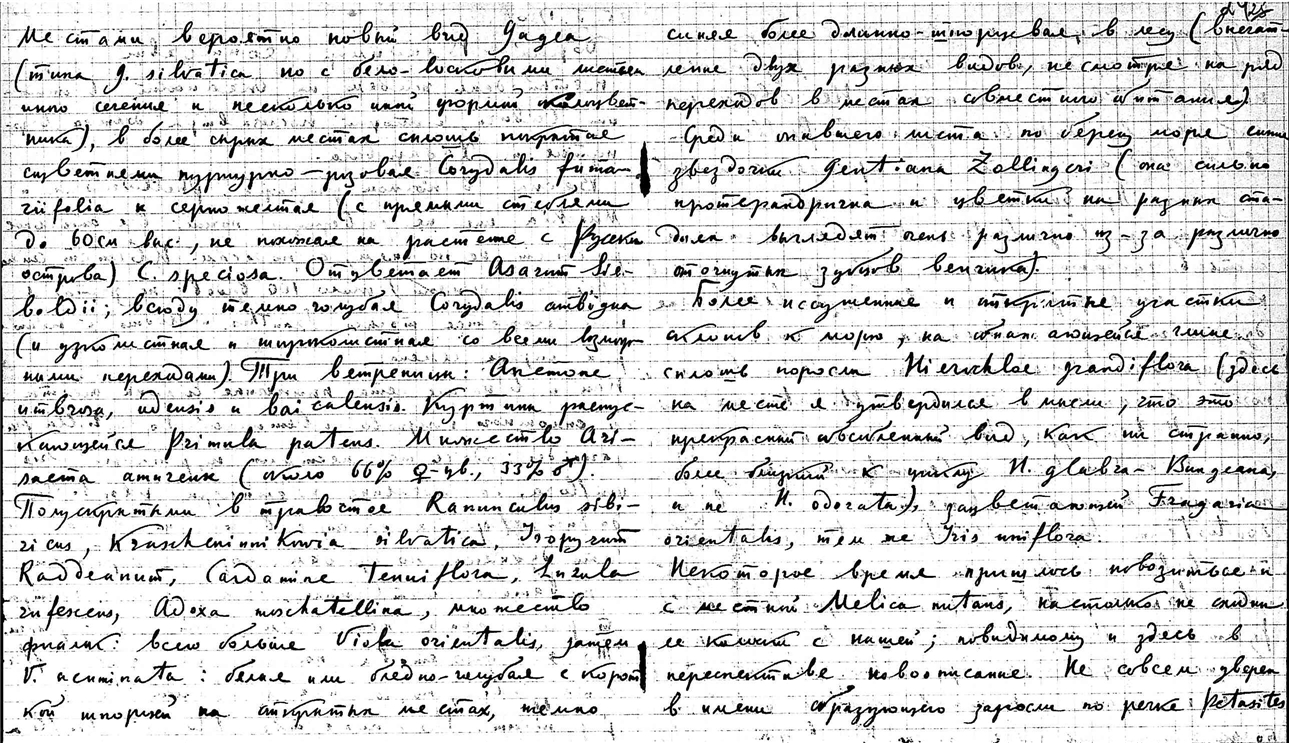 Местами вероятно новый вид Gagea
(типа g. silvatica но с бело-восковыми листьями
иного сечения и несколько иной формой околоцвет-
ника), в более сырых местах сплошь покрытые
соцветиями пурпурно-розовая Corydalis fuma-
riifolia и серножелтая (с прямыми стеблями
до 60см выс., не похожая на растение с Русский
острова) C. speciosa. Отцветает Asarum Sie-
boldii; всюду темно голубая Corydalis ambigua
(и узколистная и широколистная со всеми возмож-
ными переходами). Три ветреницы: Anemone
umbrosa, udensis и baicalensis. Куртины распус-
кающейся Primula patens. Множество Ari-
saema амурская (около 66% ♀-цв., 33% ♂).
Полускрытыми в травостое Ranunculus sibi-
ricus, Krascheninnikowia silvatica, Isopyrum
Raddeanum, Cardamine tenuiflora, Luzula
rufescens, Adoxa moschatellina, множество
фиалок: всего больше Viola orientalis, затем
V. acuminata: белая или бледно-голубая с корот-
кой шпорцей на открытых местах, темно
синяя более длинно-шпорцевая, в лесу (впечат-
ление двух разных видов, несмотря на ряд
переходов в местах совместного обитания)
Среди опавшего листа по берегу моря синие
звездочки Gentiana Zollingeri (она сильно
протерандрична и цветки на разных ста-
диях выглядят очень различно из-за различно
отогнутых зубцов венчика).
Более иссушенные и открытые участки
склонов к морю, на обнажающейся глине
сплошь поросли Hierochloe grandiflora (здесь
на месте я утвердился в мысли, что это
прекрасный обособленный вид, как ни странно,
более близкий к циклу H. glabra - Bungeana,
а не H. odorata), зацветающей Fragaria
orientalis, тем же Iris uniflora.
Некоторое время пришлось повозиться и
с местной Melica nutans, настолько не схожи
ее кажет с нашей; повидимому и здесь в
перспективе новоописание. Не совсем уверен
в имени образующего заросли по речке Petasites